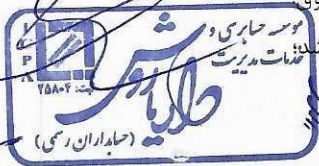 موسسه حسابرسی و
خدمات مدیریت
داریا روش
ثبت: ۲۵۸۰۴
(حسابداران رسمی)